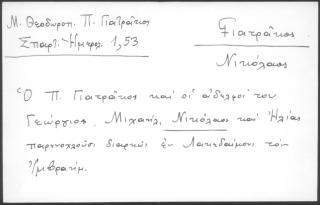 Μ. Θεοδωροπ. Π. Γιατράκος
Σπαρτ. Ημερολ. 1,53
Γιατράκος
Νικόλαος
Ὁ Π. Γιατράκος καὶ οἱ ἀδελφοί του
Γεώργιος, Μιχαήλ, Νικόλαος καὶ Ἠλίας
παρηνοχλοῦσι διαρκῶς ἐν Λακεδαίμονι τὸν